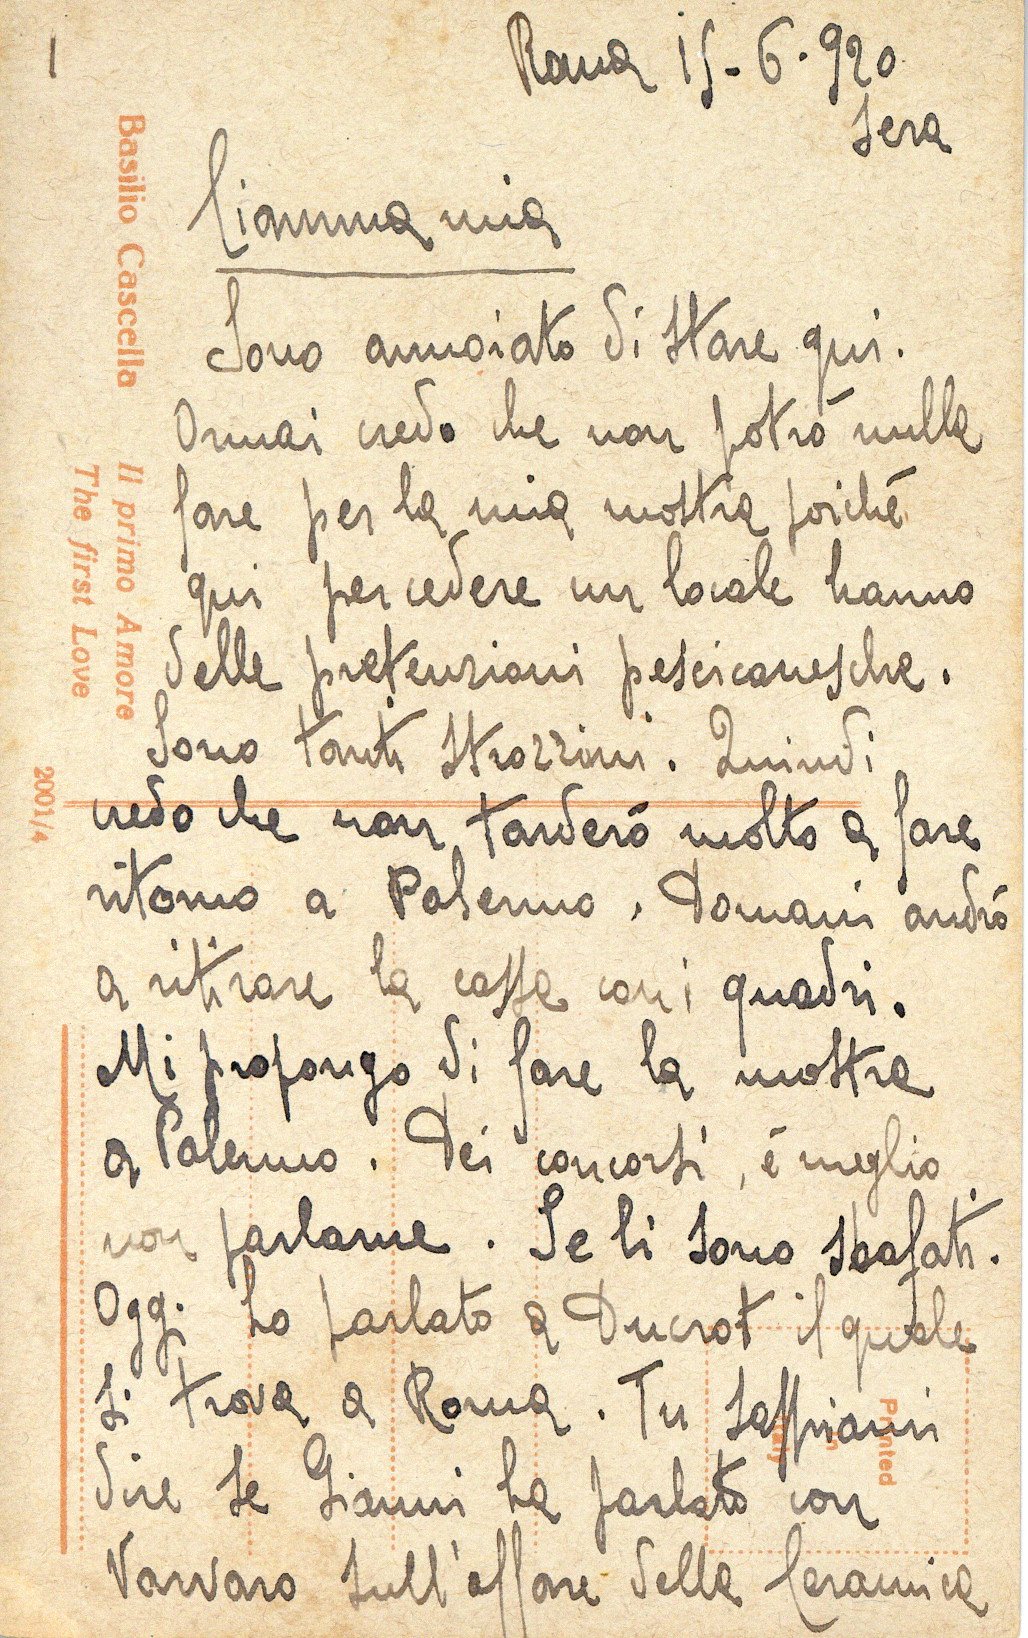 1
Roma 15-6-920
sera
Ciamma mia
Sono annoiato di stare qui.
Ormai credo che non potrò nulla
fare per la mia mostra poiché
qui per cedere un locale hanno
delle pretenzioni pescicanesche.
Sono tanti strozzini. Quindi
credo che non tarderò molto a fare
ritorno a Palermo. Domani andrò
a ritirare la cassa con i quadri.
Mi propongo di fare la mostra
a Palermo. Dei concorsi, è meglio
non parlarne. Se li sono sbafati.
Oggi ho parlato a Ducrot il quale
si trova a Roma. Tu sappiami
dire se Gianni ha parlato con
Varvaro sull'affare della Ceramica
Basilio Cascella
Il primo Amore
The first Love
2001/4
Printed
in
Italy